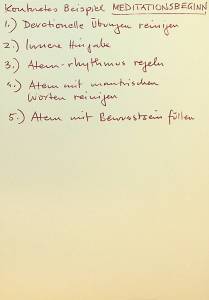 Konkretes Beispiel MEDITATIONSBEGINN
1.) Devotionelle Übungen reinigen
2.) Innere Hingabe
3.) Atem-rhythmus regeln
4.) Atem mit mantrischen
Worten reinigen
5.) Atem mit Bewusstsein füllen